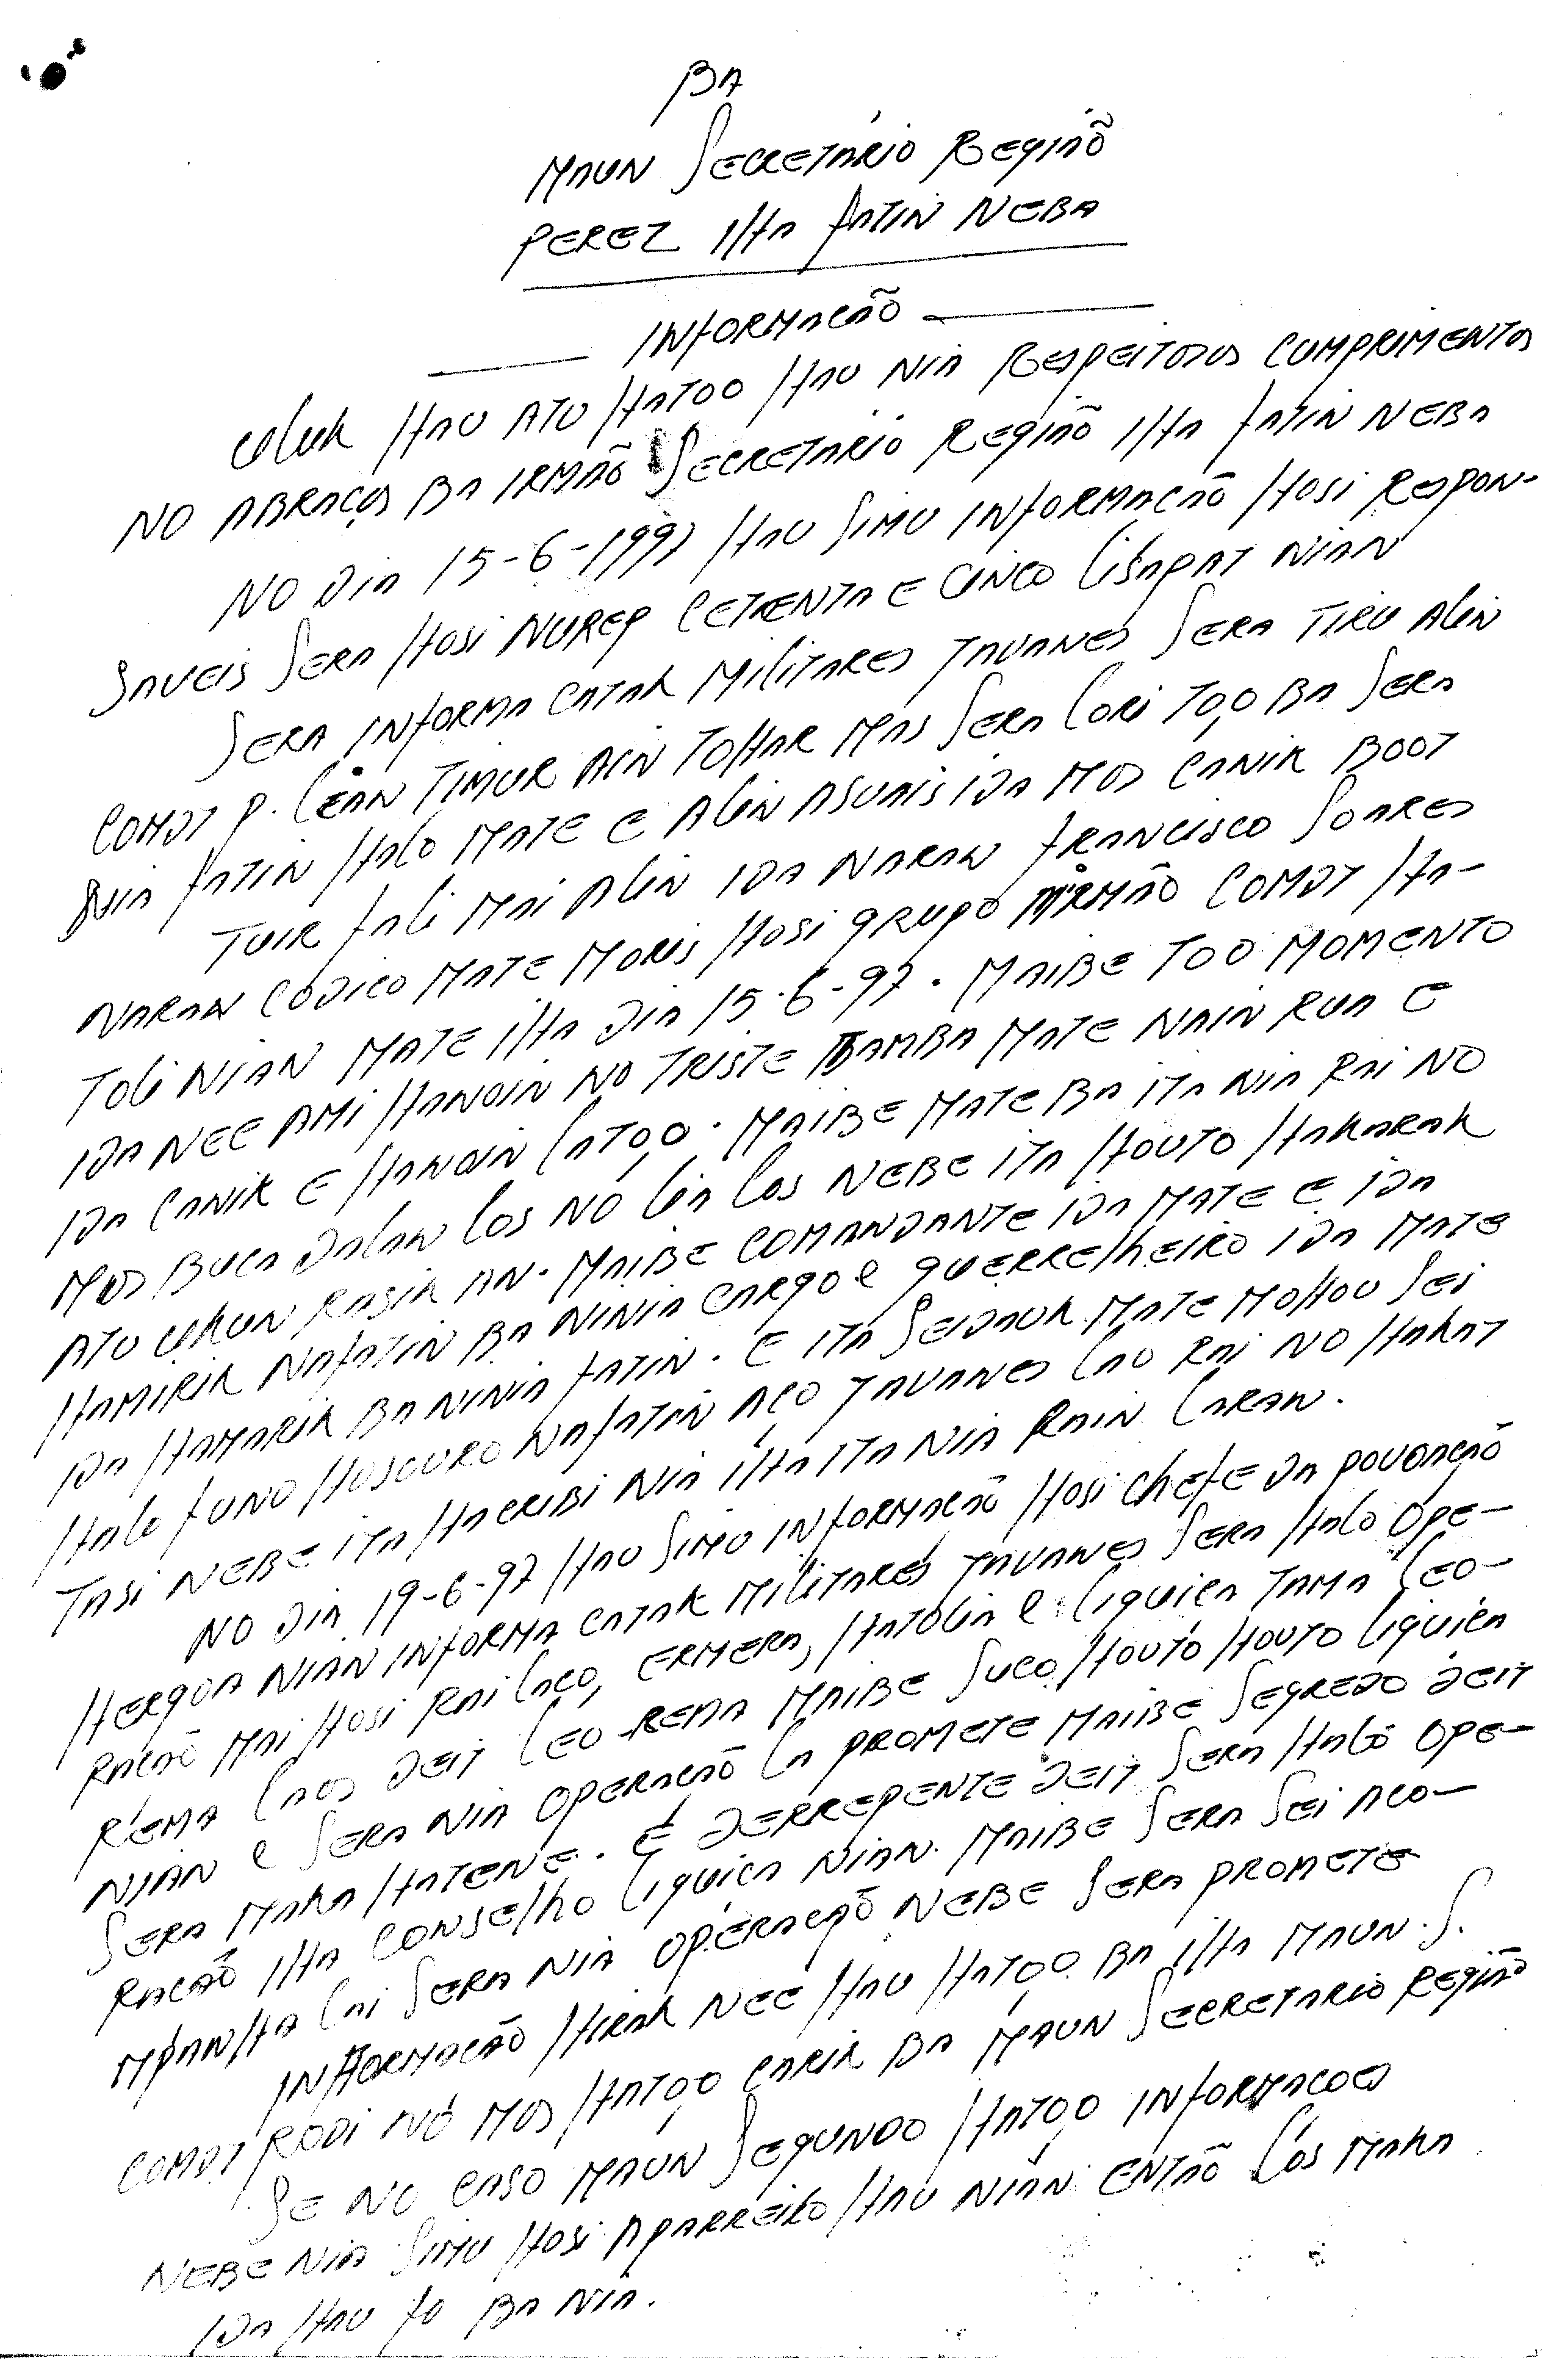 BA
MAUN SECRETÁRIO REGIÃO
PEREZ IHA FATIN NEBA
INFORMAÇÃO
ULUK HAU ATU HATOO HAU NIA RESPEITOSOS CUMPRIMENTOS
NO ABRAÇOS BA IRMÃO SECRETARIO REGIÃO IHA FATIN NEBA
NO DIA 15-6-1997 HAU SIMU INFORMAÇÃO HOSI RESPON-
SAVEIS SERA HOSI NUREP CETENTA E CINCO LISAPAT NIAN
SERA INFORMA CATAK MILITARES JAVANES SERA TIRU ALIN
COMDT P. LEAN TIMUR AIN TOHAR MAS SERA LORI TOO BA SERA
NIA FATIN HALO MATE E ALIN ASUAIS IDA MOS CANIK BOOT
TUIR FALI MAI ALIN IDA NARAN FRANCISCO SOARES
NARAN CODICO MATE MORIS HOSI GRUPO IRMÃO COMDT HA-
TOLI NIAN MATE IHA DIA 15-6-97. MAIBE TOO MOMENTO
IDA NEE AMI HANOIN NO TRISTE TAMBA MATE NAIN RUA E
IDA CANIK E HANOIN LATOO. MAIBE MATE BA ITA NIA RAI NO
MOS BUCA DALAN LOS NO LIA LOS NEBE ITA HOUTO HAKARAK
ATU UKUN RASIK AN. MAIBE COMANDANTE IDA MATE E IDA
HAMIRIK NAFATIN BA NINIA CARGO E GUERRELHEIRO IDA MATE
IDA HAMARIK BA NINIA FATIN. E ITA SEIDAUK MATE MOHOU SEI
HALO FUNO HOSOURO NAFATIN ACO JAVANES LAO RAI NO HAKAT
TASI NEBE ITA HACRIBI NIA IHA ITA NIA RAIN LARAN.
NO DIA 19-6-97 HAU SIMU INFORMAÇÃO HOSI CHEFE DA POVOAÇÃO
HERGOA NIAN INFORMA CATAK MILITARES JAVANES SERA HALO OPE-
RACAÕ MAI HOSI RAILACO, ERMERA, HATOLIA E LIQUICA TAMA LEO-
REMA LAOS DEIT LEO-REMA MAIBE SUCO HOUTO HOUTO LIQUICA
NIAN E SERA NIA OPERACAÕ LA PROMETE MAIBE SEGREDO DEIT
SERA MAKA HATENE. E DERREPENTE DEIT SERA HALO OPE-
RACAÕ IHA CONSELHO LIQUICA NIAN. MAIBE SERA SEI ACO-
MPANHA LAI SERA NIA OPERACAÕ NEBE SERA PROMETE
INFORMACAÕ HIRAK NEE HAU HATOO BA IHA MAUN. S.
COMDT RODI NO MOS HATOO CARIK BA MAUN SECRETARIO REGIÃO
SE NO CASO MAUN SEGUNDO HATOO INFORMACOES
NEBE NIA SIMU HOSI APARREILO HAU NIAN ENTAÕ LOS MAKA
IDA HAU FO BA NIA.